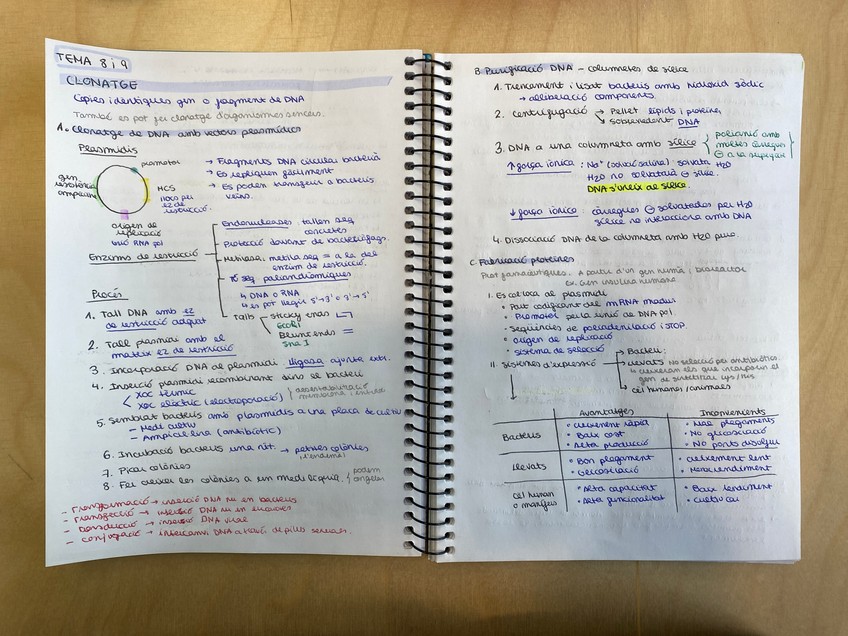 TEMA 8 i 9
CLONATGE
Còpies idèntiques gen o fragment de DNA
També es pot fer clonatge d'organismes sencers.
1. Clonatge de DNA amb vectors plasmídics
Plasmidis
promotor
gen resistència
MCS
llocs per
EZ de
restricció.
origen de
replicació
unió RNA pol
→ Fragments DNA circular bacterià
→ Es repliquen fàcilment
→ Es poden transferir a bacteris
veïns.
Enzims de restricció
Endonucleases: tallen seq
concretes
Protecció davant de bacteriòfags.
Metilasa, metila seq = a la del
enzim de restricció.
seq palindròmiques
↳ DNA o RNA
↳ es pot llegir 5'→3' o 3'→5'
Talls
Sticky ends
EcoRI
Blunt ends
Sma I
Procés
1. Tall DNA amb EZ
de restricció adequat
2. Tall plasmidi amb el
mateix EZ de restricció
3. Incorporació DNA al plasmidi. lligasa ajunta extr.
4. Inserció plasmidi recombinant dins el bacteri
Xoc tèrmic
Xoc elèctric (electroporació)
desestabilització
membrana i entrada
5. Sembrar bacteris amb plasmidis a una placa de cultiu
- Medi cultiu
- Ampicil·lina (antibiòtic)
6. Incubació bacteris una nit. → petites colònies
(l'endemà)
7. Picar colònies
8. Fer créixer les colònies a un medi líquid.
podem
congelar
- Transformació → inserció DNA nu en bacteris
- Transfecció → inserció DNA nu en eucariotes
- Transducció → inserció DNA viral
- Conjugació → intercanvi DNA a través de pilis sexuals.
B. Purificació DNA – columnetes de sílice
1. Trencament i lisat bacteris amb hidròxid sòdic
→ alliberació components.
2. Centrifugació
→ Pellet lípids i proteïnes
→ sobrenedant DNA
3. DNA a una columneta amb sílice
polianió amb
moltes càrregues
⊖ a la superfície
↑ força iònica: Na⁺ (solució salina) solvata H₂O
H₂O no solvatarà ⊖ sílice.
DNA s'uneix al sílice.
↓ força iònica: càrregues ⊖ solvatades per H₂O
sílice no interacciona amb DNA
4. Dissociació DNA de la columneta amb H₂O pura.
C. Fabricació proteïnes
Prot farmacèutiques. A partir d'un gen humà i bioreactor
Ex. gen insulina humana
I. Es col·loca al plasmidi
• Part codificant del mRNA madur
• Promotor pella unió de DNA pol.
• Seqüències de poliadenilació i STOP.
• origen de replicació
• sistema de selecció
II. Sistemes d'expressió
→ Bacteri:
→ llevats No selecció per antibiòtics.
gen de
→ cèl humanes/animales
Avantatges
Inconvenients
Bacteris
• creixement ràpid
• Baix cost
• Alta producció
• Mal plegaments
• No glicosilació
• No ponts disulfur
Llevats
• Bon plegament
• Glicosilació
• creixement lent
• Menor rendiment
Cèl human
o mamífers
• Alta capacitat
• Alta funcionalitat
• Baix rendiment
• Cultiu car